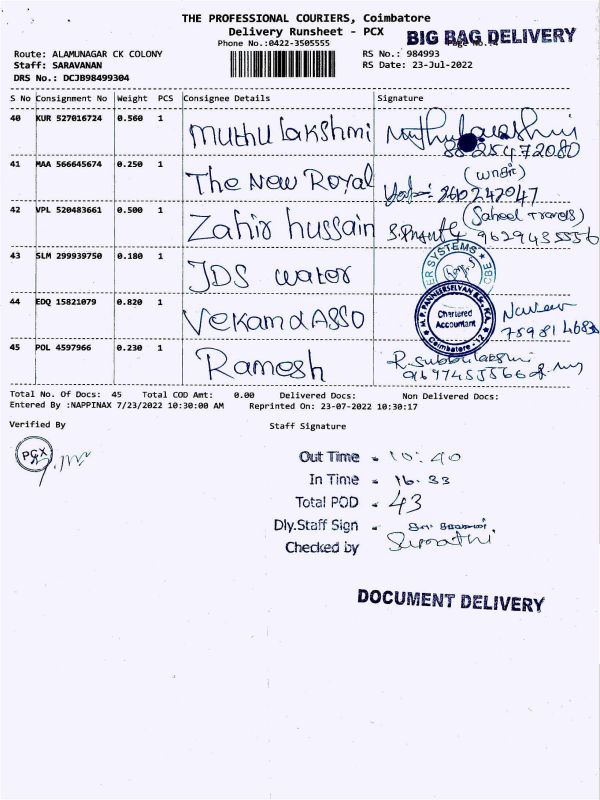 THE PROFESSIONAL COURIERS, Coimbatore
Delivery Runsheet - PCX
BIG BAG DELIVERY
Phone No.:0422-3505555
Page No.:4
Route: ALAMUNAGAR CK COLONY
RS No.: 984993
Staff: SARAVANAN
RS Date: 23-Jul-2022
DRS No.: DCJB98499304
S No Consignment No Weight PCS Consignee Details Signature
40 KUR 527016724 0.560 1 Muthu lakshmi Muthulakshmi
41 MAA 566645674 0.250 1 The New Royal
42 VPL 520483661 0.500 1 Zahir hussain (Saheel Travels)
43 SLM 299939750 0.180 1 JDS water
ER SYSTEMS
44 EDQ 15821079 0.820 1 Vekam d ASSO
M.P. PANNEERSELVAN
Chartered
Accountant
Coimbatore - 12
Naveen
45 POL 4597966 0.230 1 Ramesh R. Subbulakshmi
Total No. Of Docs: 45 Total COD Amt: 0.00 Delivered Docs: Non Delivered Docs:
Entered By :NAPPINAX 7/23/2022 10:30:00 AM Reprinted On: 23-07-2022 10:30:17
Verified By
Staff Signature
PCX
Out Time - 10:40
In Time - 16.33
Total POD - 43
Dly.Staff Sign -
Checked by Sumathi
DOCUMENT DELIVERY